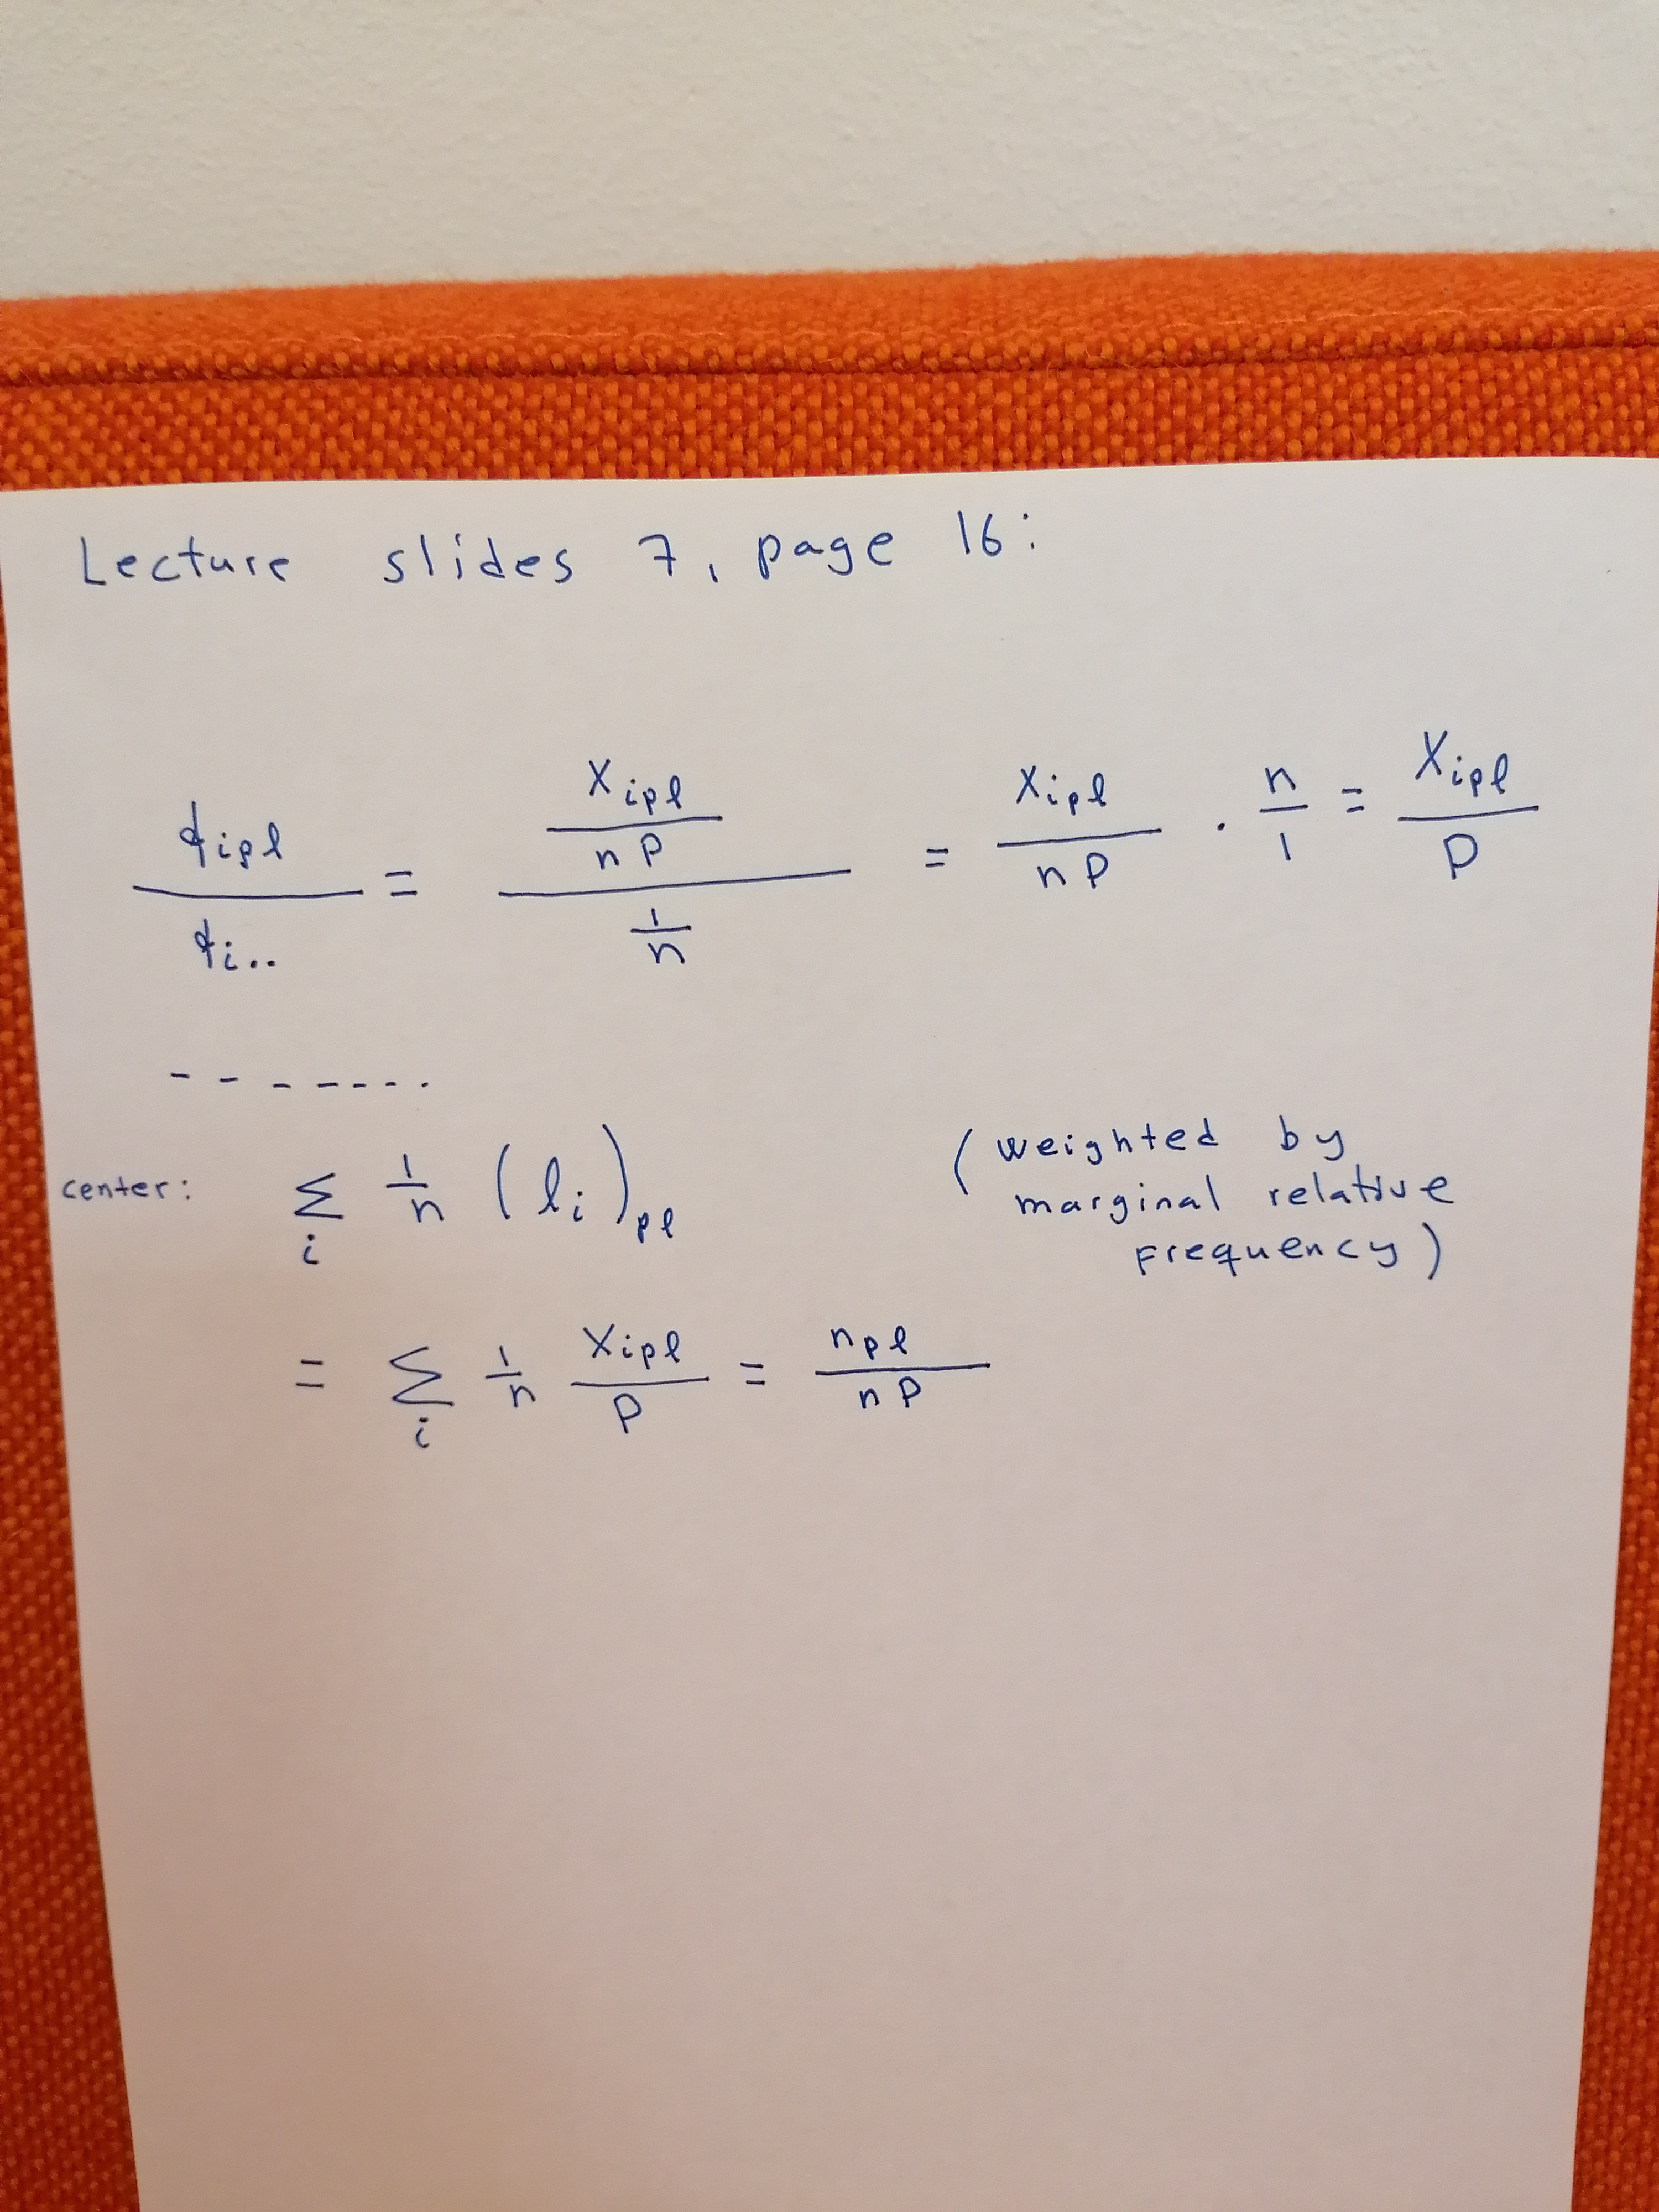 Lecture slides 7, page 16:
f_{ipl} / f_{i..} = (x_{ipl} / nP) / (1/n) = x_{ipl} / nP · n/1 = x_{ipl} / P
- - - - - - - .
center: Σ_i 1/n (l_i)_{pl} (weighted by
marginal relative
frequency)
= Σ_i 1/n x_{ipl} / P = n_{pl} / nP